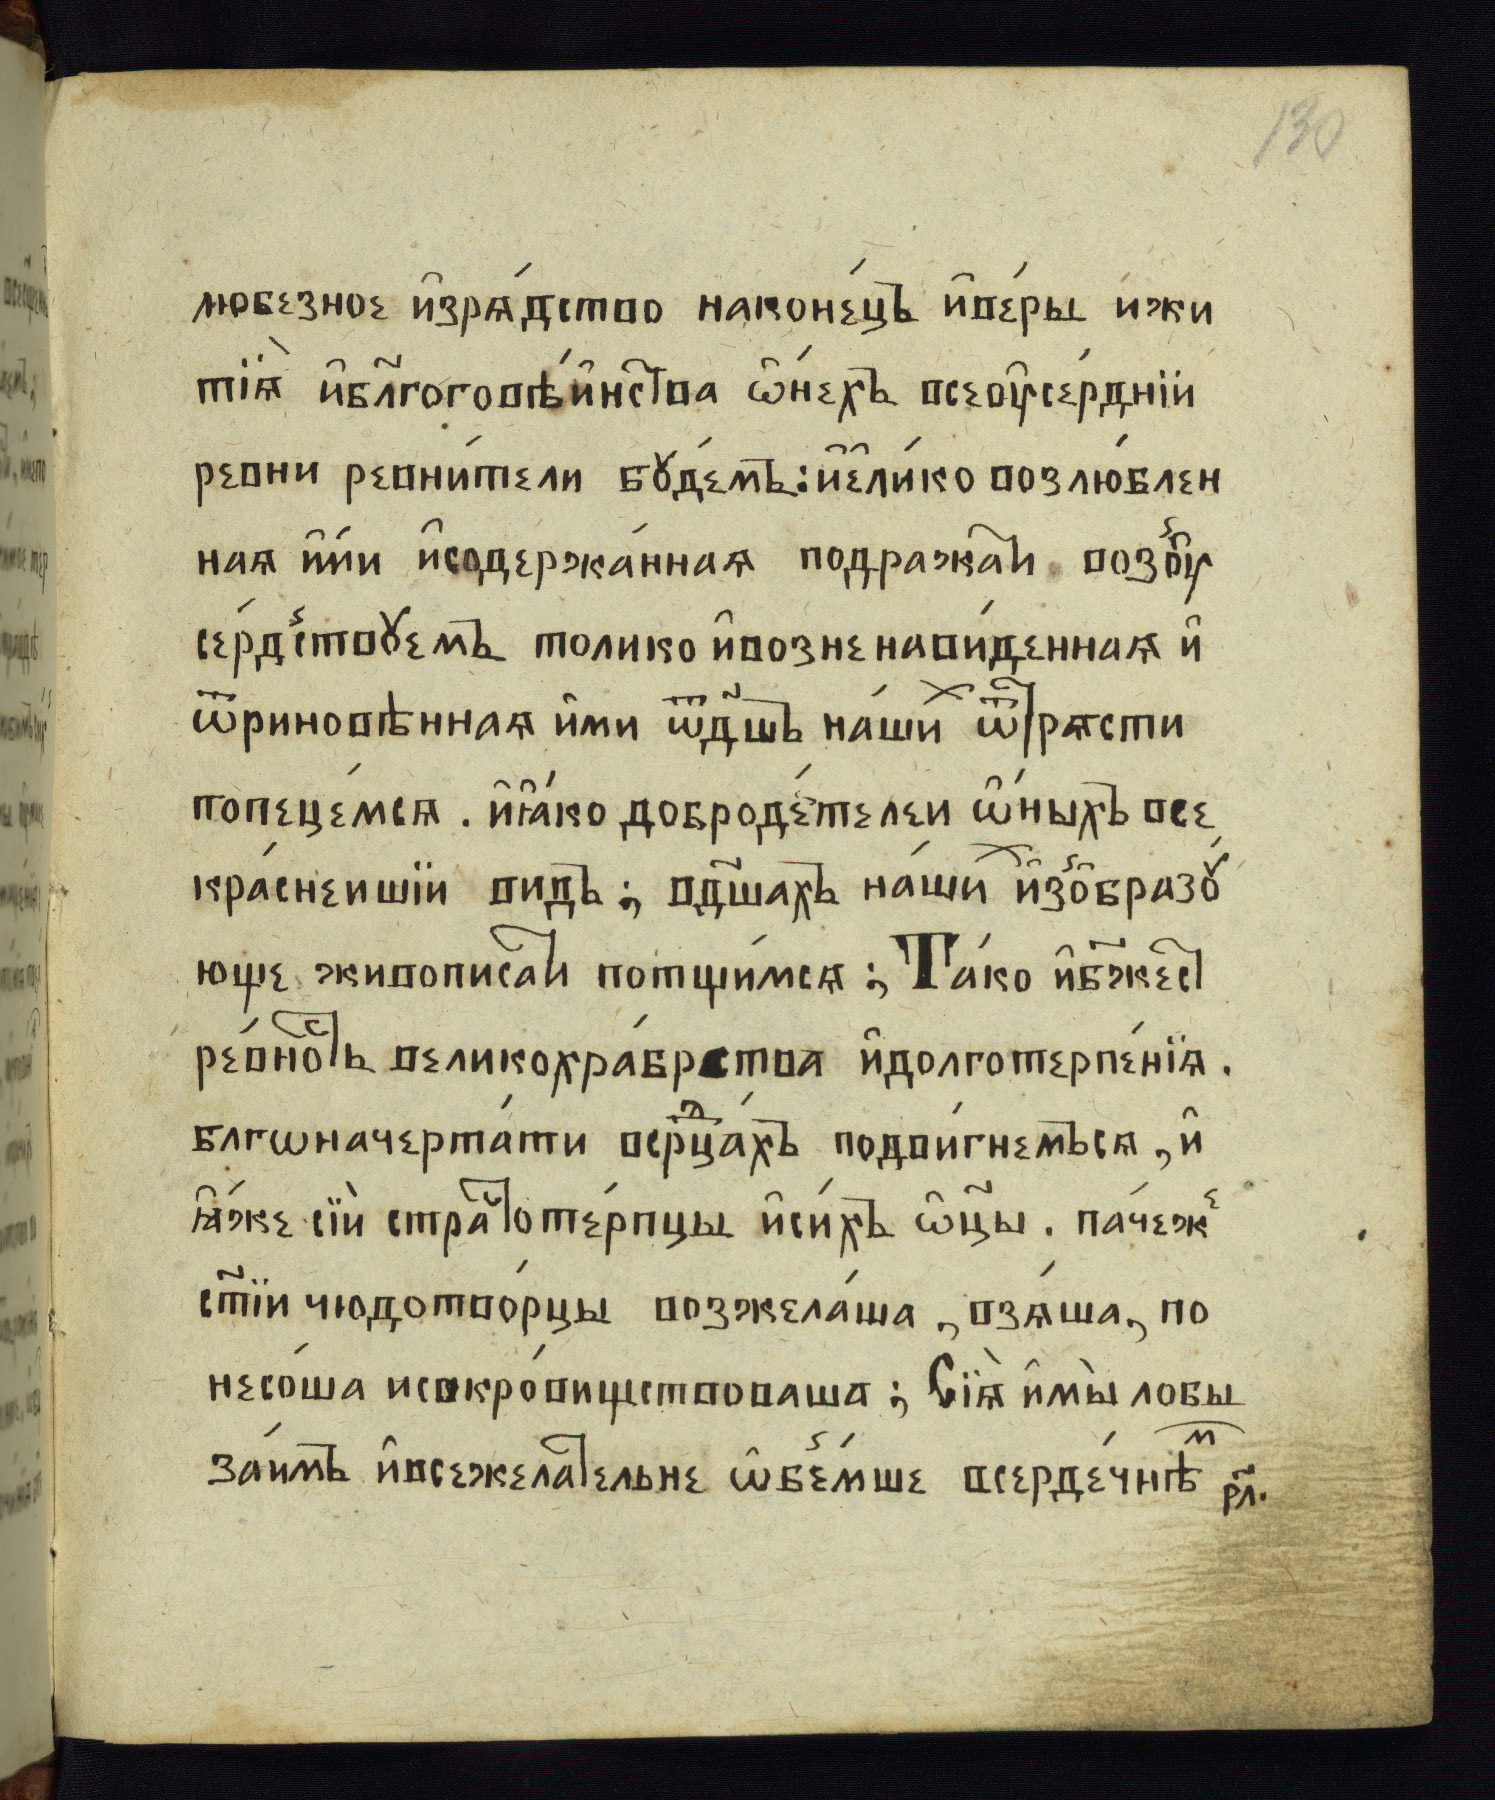 130
любезное и҆зрѧ́дство наконе́цъ и҆ве́ры ижи
тїѧ̀ и҆бл҃гоговѣ́и҆нст҇ва ѡ҆́нехъ всеоу҆се́рднїи
ревни ревни́тели бꙋ́демъ: и҆е҆ли́ко возлю́блен
наѧ и҆́ми и҆содержа́ннаѧ подражат҇и воз̾оу҆
се́рд̾ствꙋемъ толико и҆возненави́деннаѧ и҆
ѿриновѣннаѧ и҆ми ѿдш҃ъ на́шихъ ѿт҇рѧсти
попеце́мсѧ. и҆ꙗ҆́ко доброде́телеи ѡ҆́ныхъ все
кра́снеишїи видъ; вдш҃ахъ на́шихъ и҆з̾о҆бразꙋ́
юще живописат҇и потщи́мсѧ; Та́ко и҆бж҃ест҇
ре́вност҇ь великохра́брства и҆долготерпе́нїѧ.
блгѡначерта́ти всрⷣца́хъ подви́гнемъсѧ, и҆
ꙗ҆́же сїѝ страⷭ҇тоте́рпцы и҆си́хъ ѡ҆ц҃ы. па́чежⷷ
ст҃їи чюдотво́рцы возжела́ша, взѧ́ша, по
несо́ша исокро́виществоваша; Сїѧ̀ и҆мы̀ лобы
за́имъ и҆всежелат҇ельне ѡ҆б̾е́мше всерде́чнѣⷨ
рл҃.